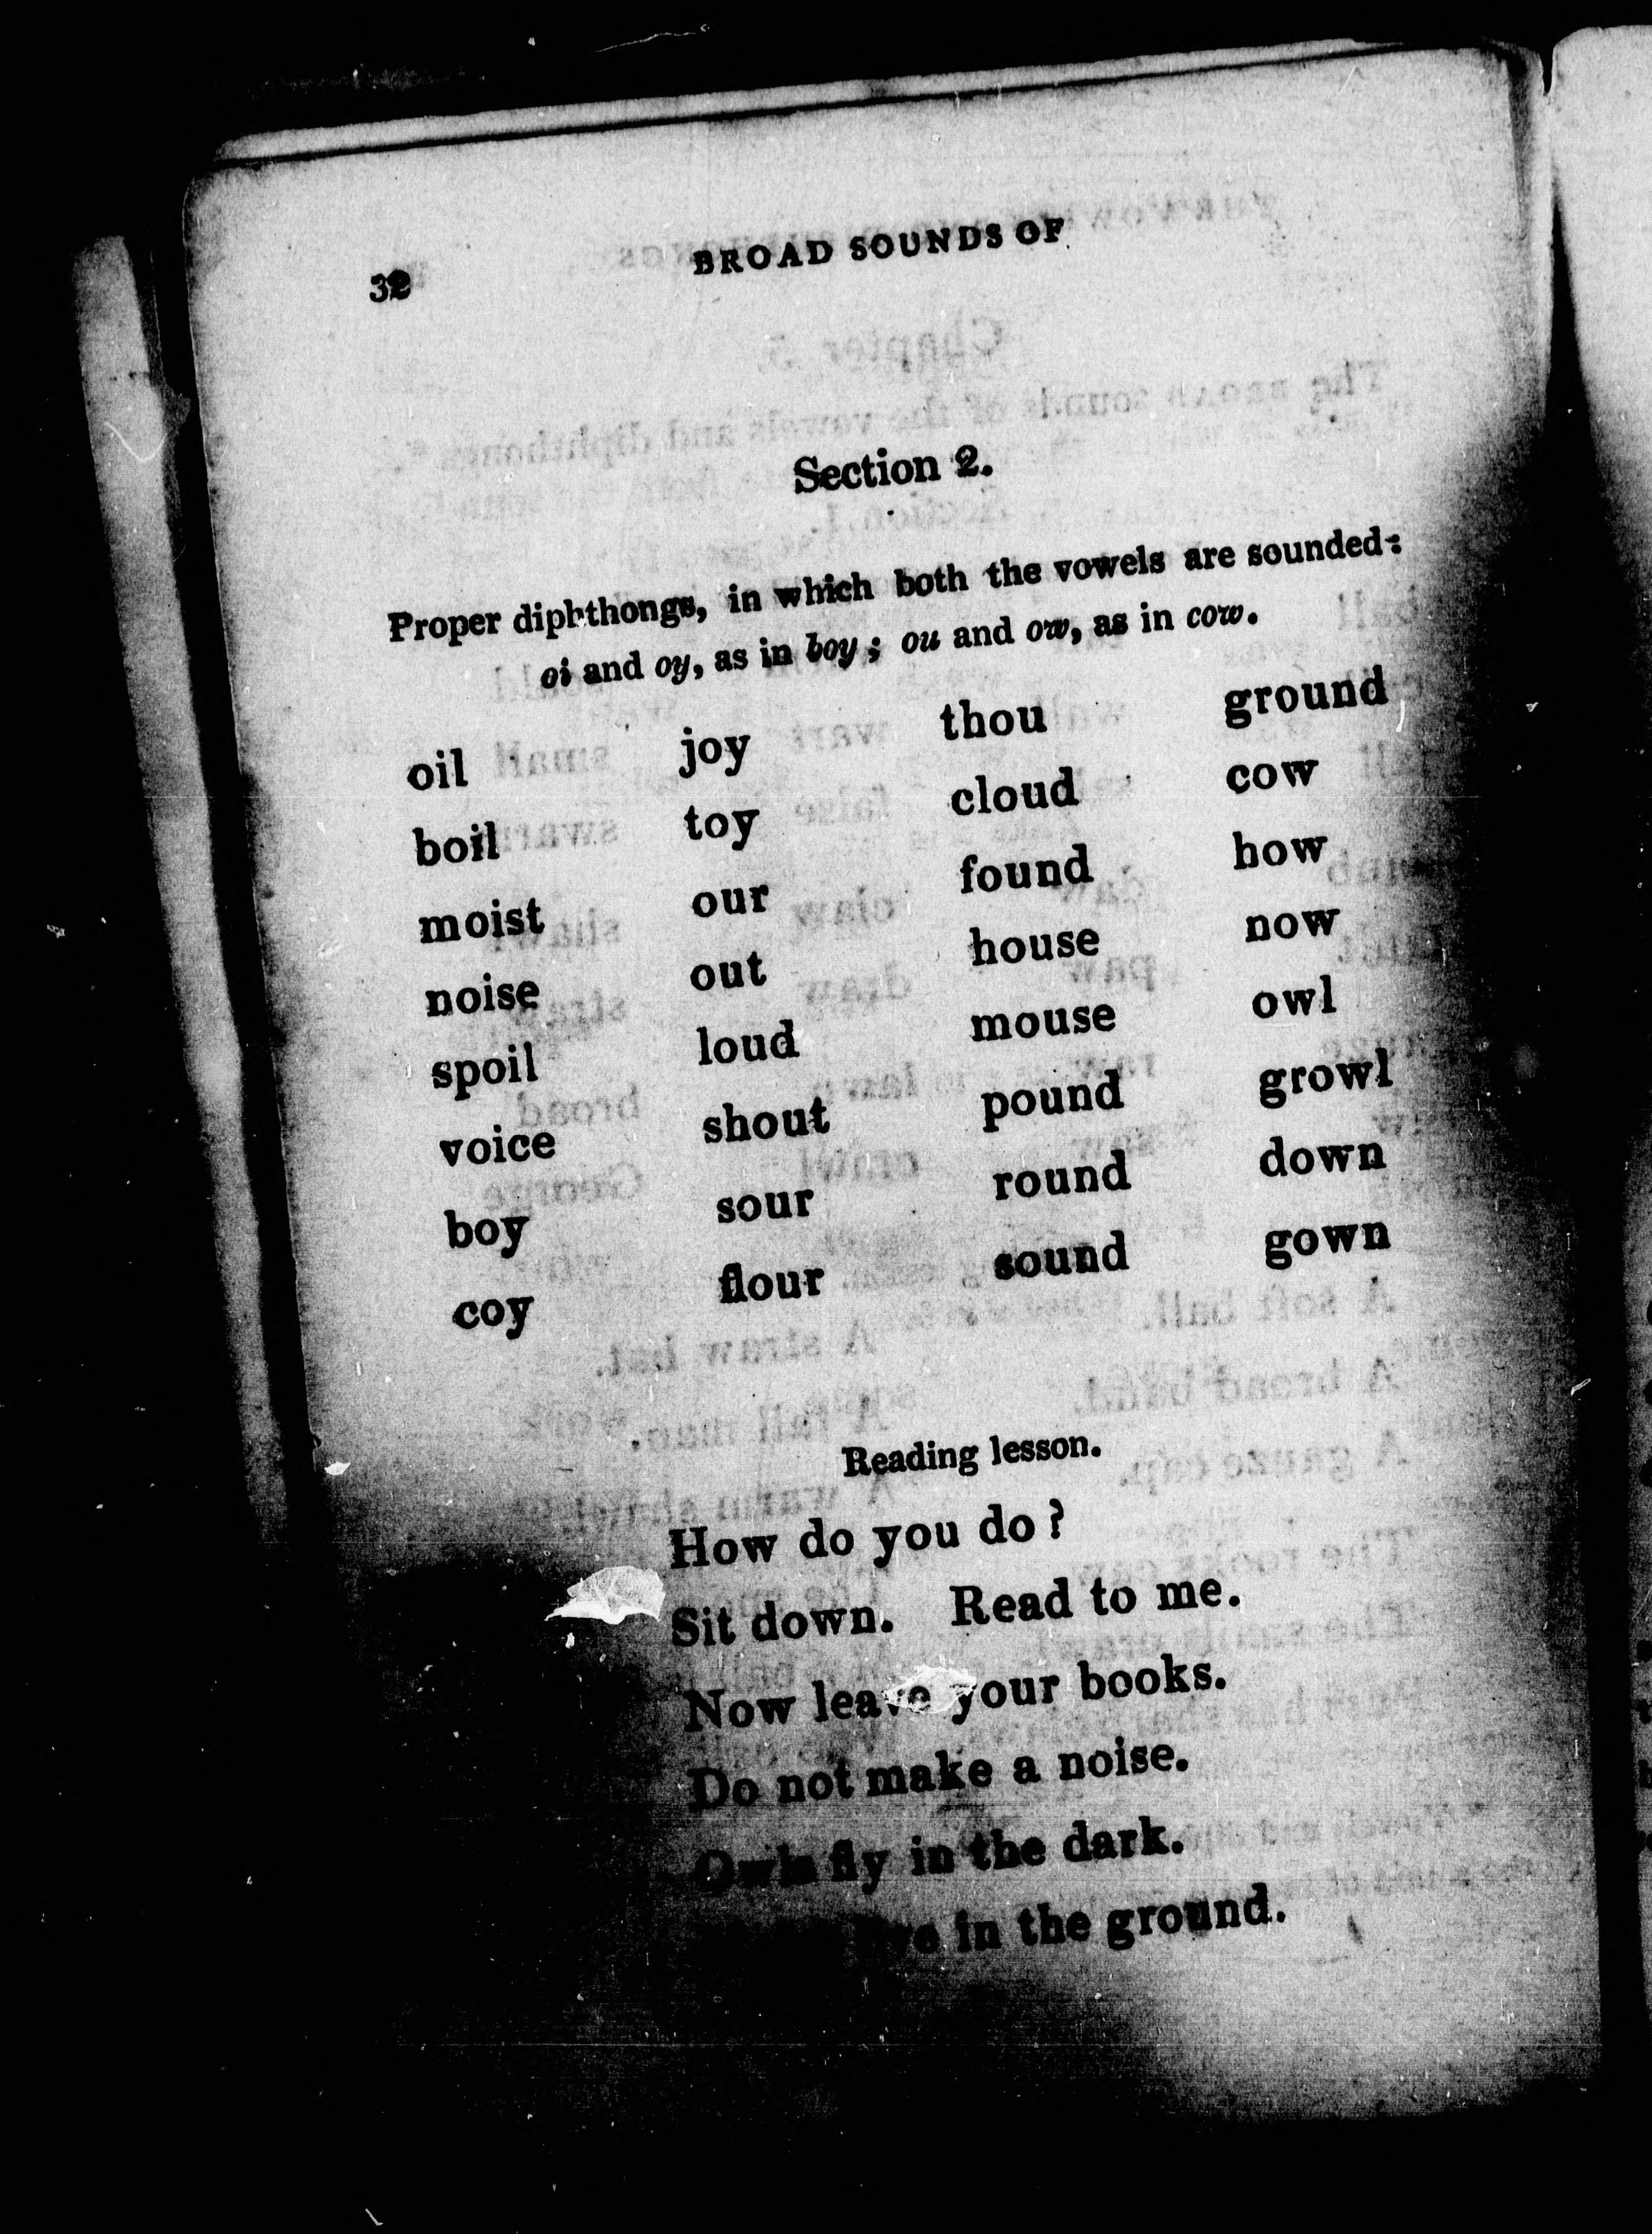 32 BROAD SOUNDS OF
Section 2.
Proper diphthongs, in which both the vowels are sounded:
oi and oy, as in boy; ou and ow, as in cow.
oil joy thou ground
boil toy cloud cow
moist our found how
noise out house now
spoil loud mouse owl
voice shout pound growl
boy sour round down
coy flour sound gown
Reading lesson.
How do you do?
Sit down. Read to me.
Now leave your books.
Do not make a noise.
Owls fly in the dark.
in the ground.